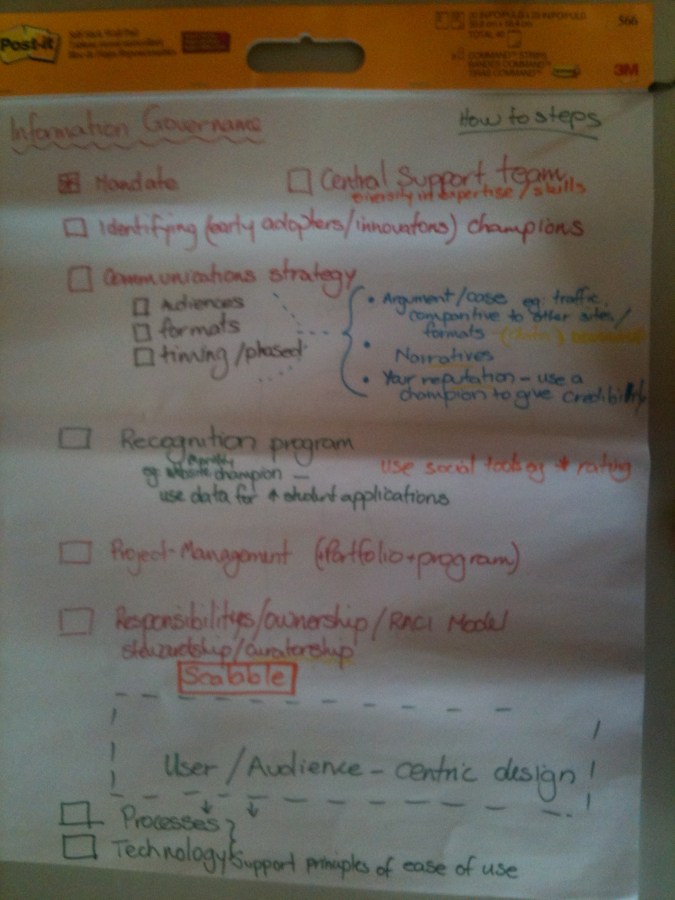 Post-it
566
3M
Information Governance
How to steps
Mandate
Central Support team
diversity in expertise/skills
Identifying (early adopters/innovators) champions
Communications strategy
Audiences
formats
timing/phased
• Argument/case eg. traffic
comparitive to other sites/
formats (data)
• Narratives
• Your reputation – use a
champion to give credibility
Recognition program
eg website champion –
monthly
use data for ↑ student applications
use social tools eg * rating
Project-Management (Portfolio+program)
Responsibilitys/ownership/RACI Model
stewardship/curatorship
Scalable
User/Audience – centric design
Processes
Technology
Support principles of ease of use